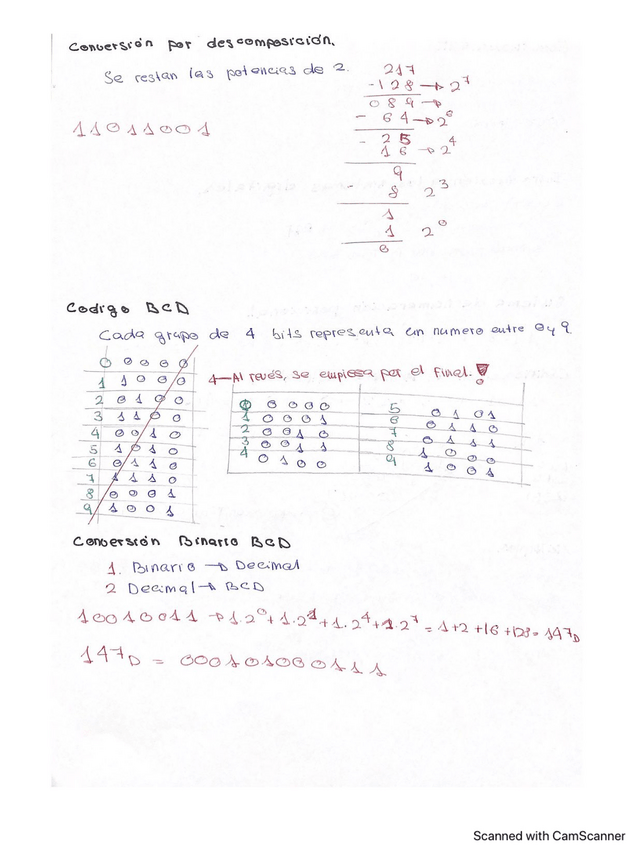 Conversión por descomposición.
Se restan las potencias de 2.
11011001
217
-128 → 2^7
089 →
- 64 → 2^6
- 25
16 → 2^4
9
8 2^3
1
1 2^0
0
Codigo BCD
Cada grupo de 4 bits representa un numero entre 0 y 9
0 0000
1 1000
2 0100
3 1100
4 0010
5 1010
6 0110
7 1110
8 0001
9 1001
← Al revés, se empiesa por el final.!
0 0000
1 0001
2 0010
3 0011
4 0100
5 0101
6 0110
7 0111
8 1000
9 1001
Conversión Binario BCD
1. Binario → Decimal
2 Decimal → BCD
10010011 → 1·2^0+1·2^1+1·2^4+1·2^7=1+2+16+128=147D
147D = 000101000111
Scanned with CamScanner